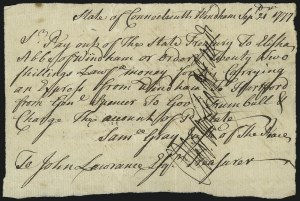 State of Connecticutt Windham Sepr 21 1777
Sr Pay out of the State Treasury To Elisha
Abbe of Windham or Order Twenty Two
Shillings Lawfull money for Carrying
an Express from Windham To Hartford
from Genl Spencer To Govr Trumbull &
Charge the account of State
Saml Gray of the Peace
To John Lawrance Esqr Treasurer